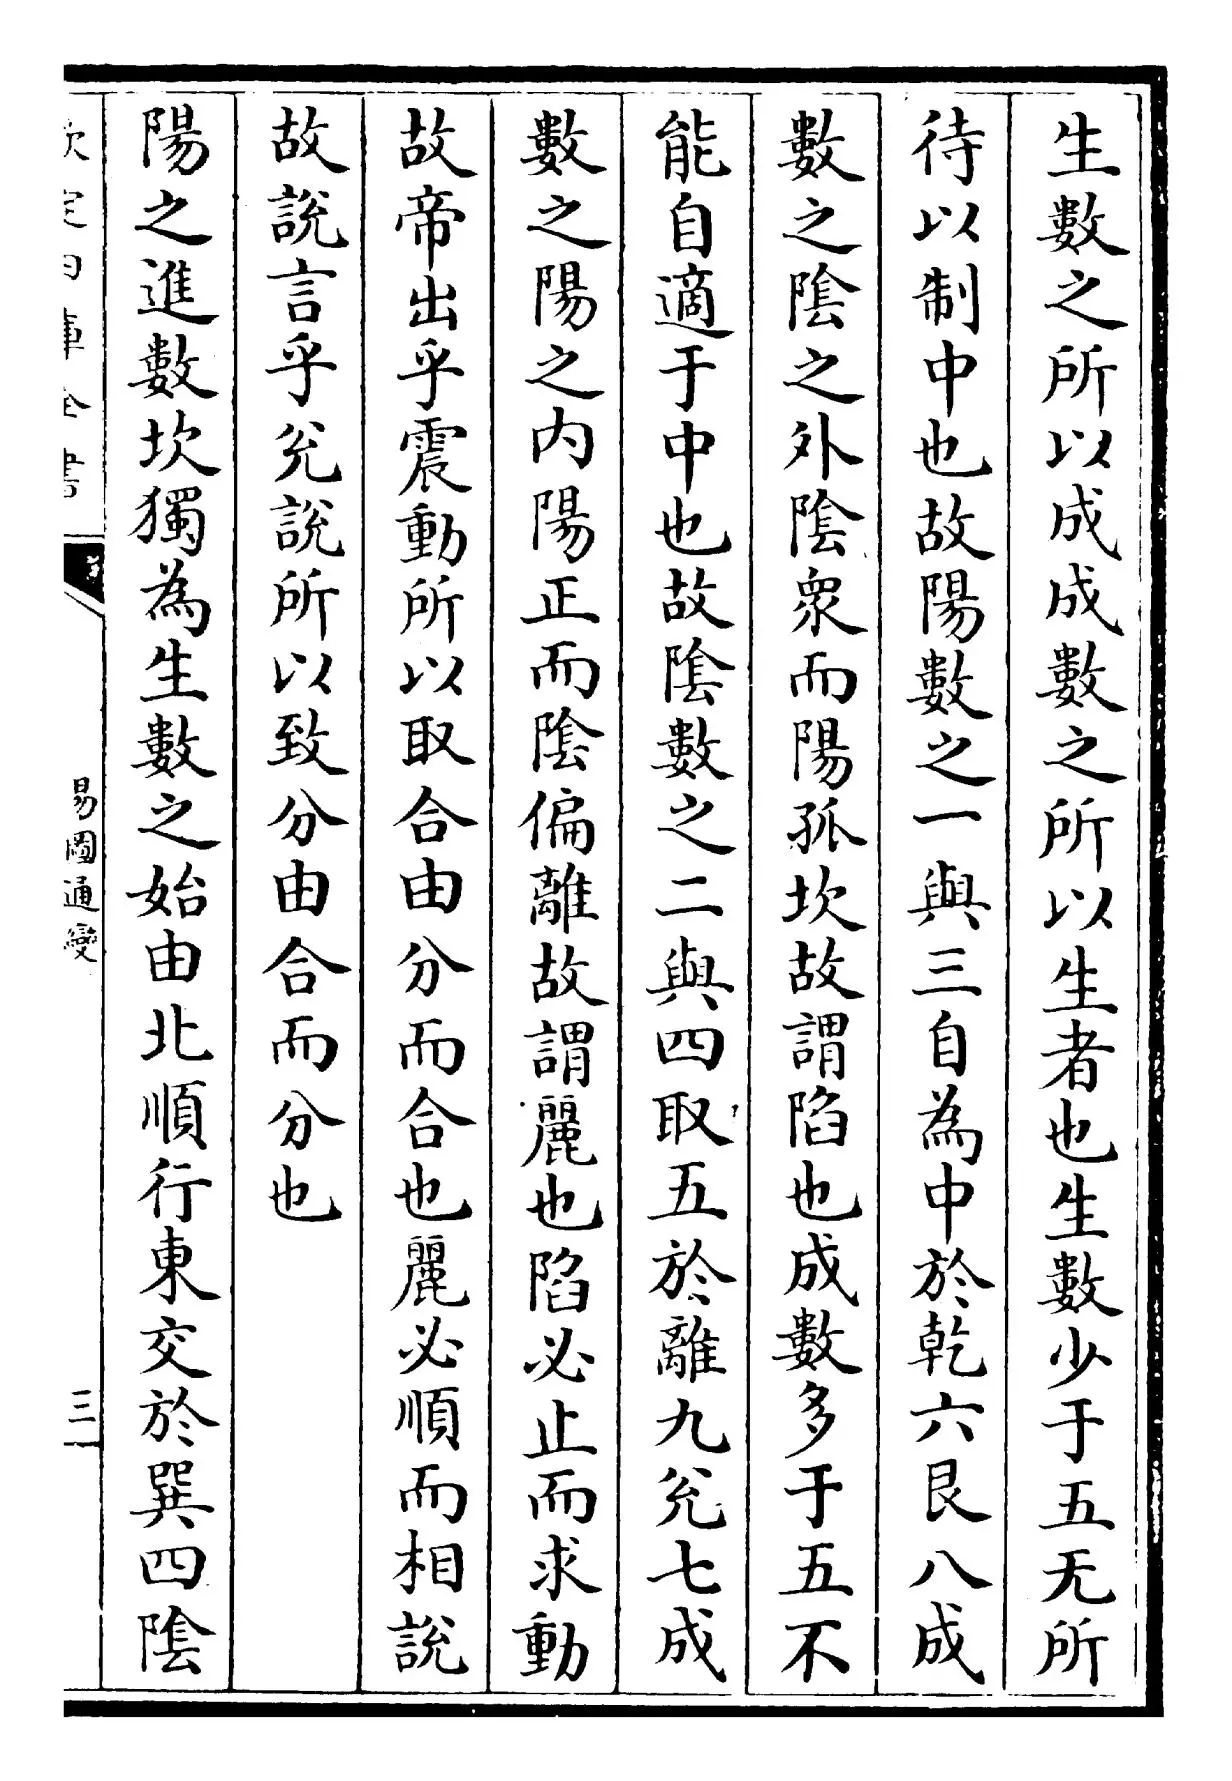 生數之所以成成數之所以生者也生數少于五无所
待以制中也故陽數之一與三自為中於乾六艮八成
數之陰之外陰衆而陽孤坎故謂陷也成數多于五不
能自適于中也故陰數之二與四取五於離九兊七成
數之陽之内陽正而陰偏離故謂麗也陷必止而求動
故帝出乎震動所以取合由分而合也麗必順而相說
故説言乎兊説所以致分由合而分也
陽之進數坎獨為生數之始由北順行東交於巽四陰
欽定四庫全書
易圖通變
三